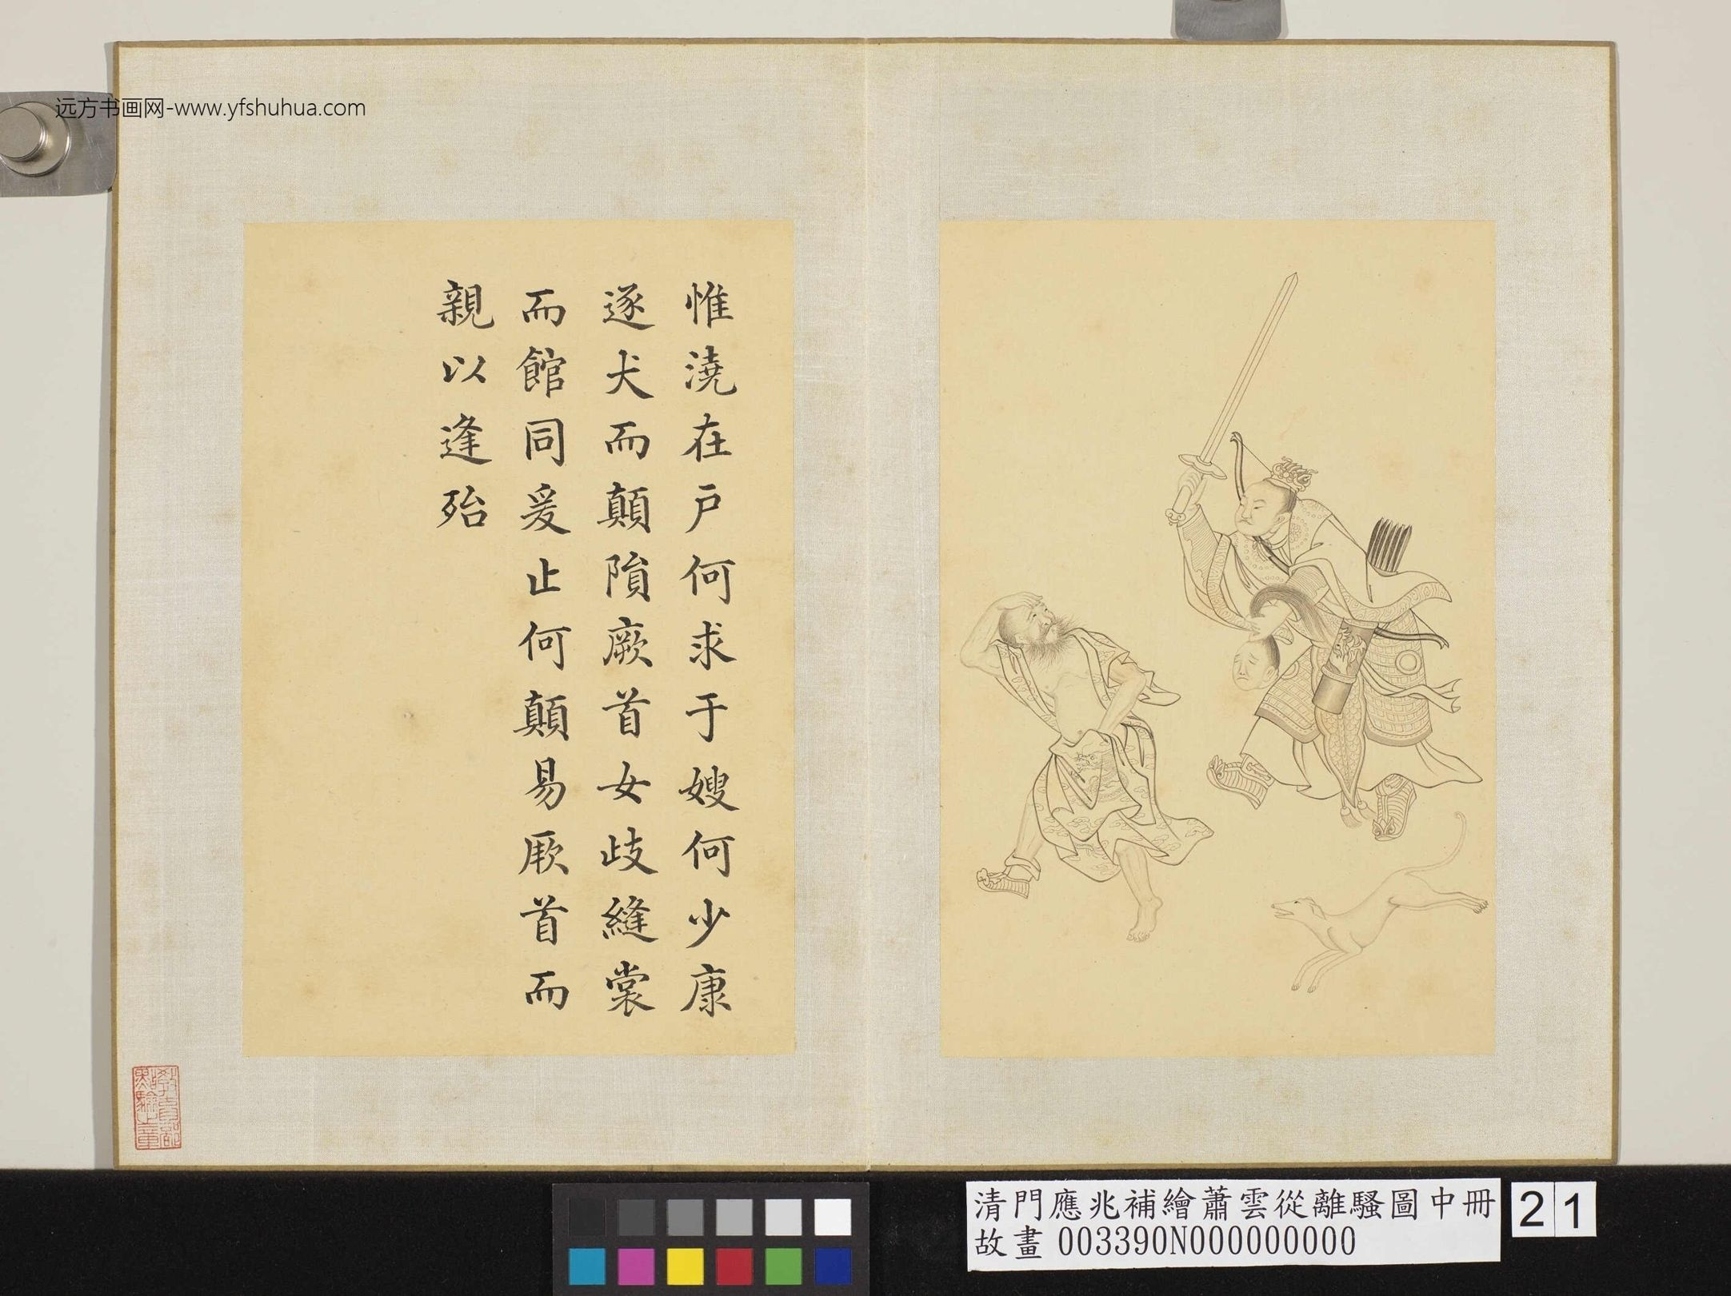 远方书画网-www.yfshuhua.com
惟澆在戸何求于嫂何少康
逐犬而顛隕厥首女歧縫裳
而館同爰止何顛易厥首而
親以逢殆
清門應兆補繪蕭雲從離騷圖中冊
故畫 003390N000000000
21